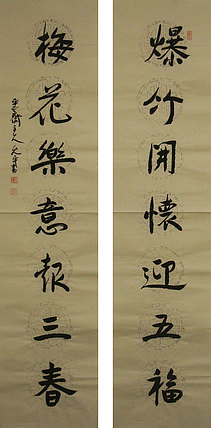 爆竹開懷迎五福
梅花樂意報三春